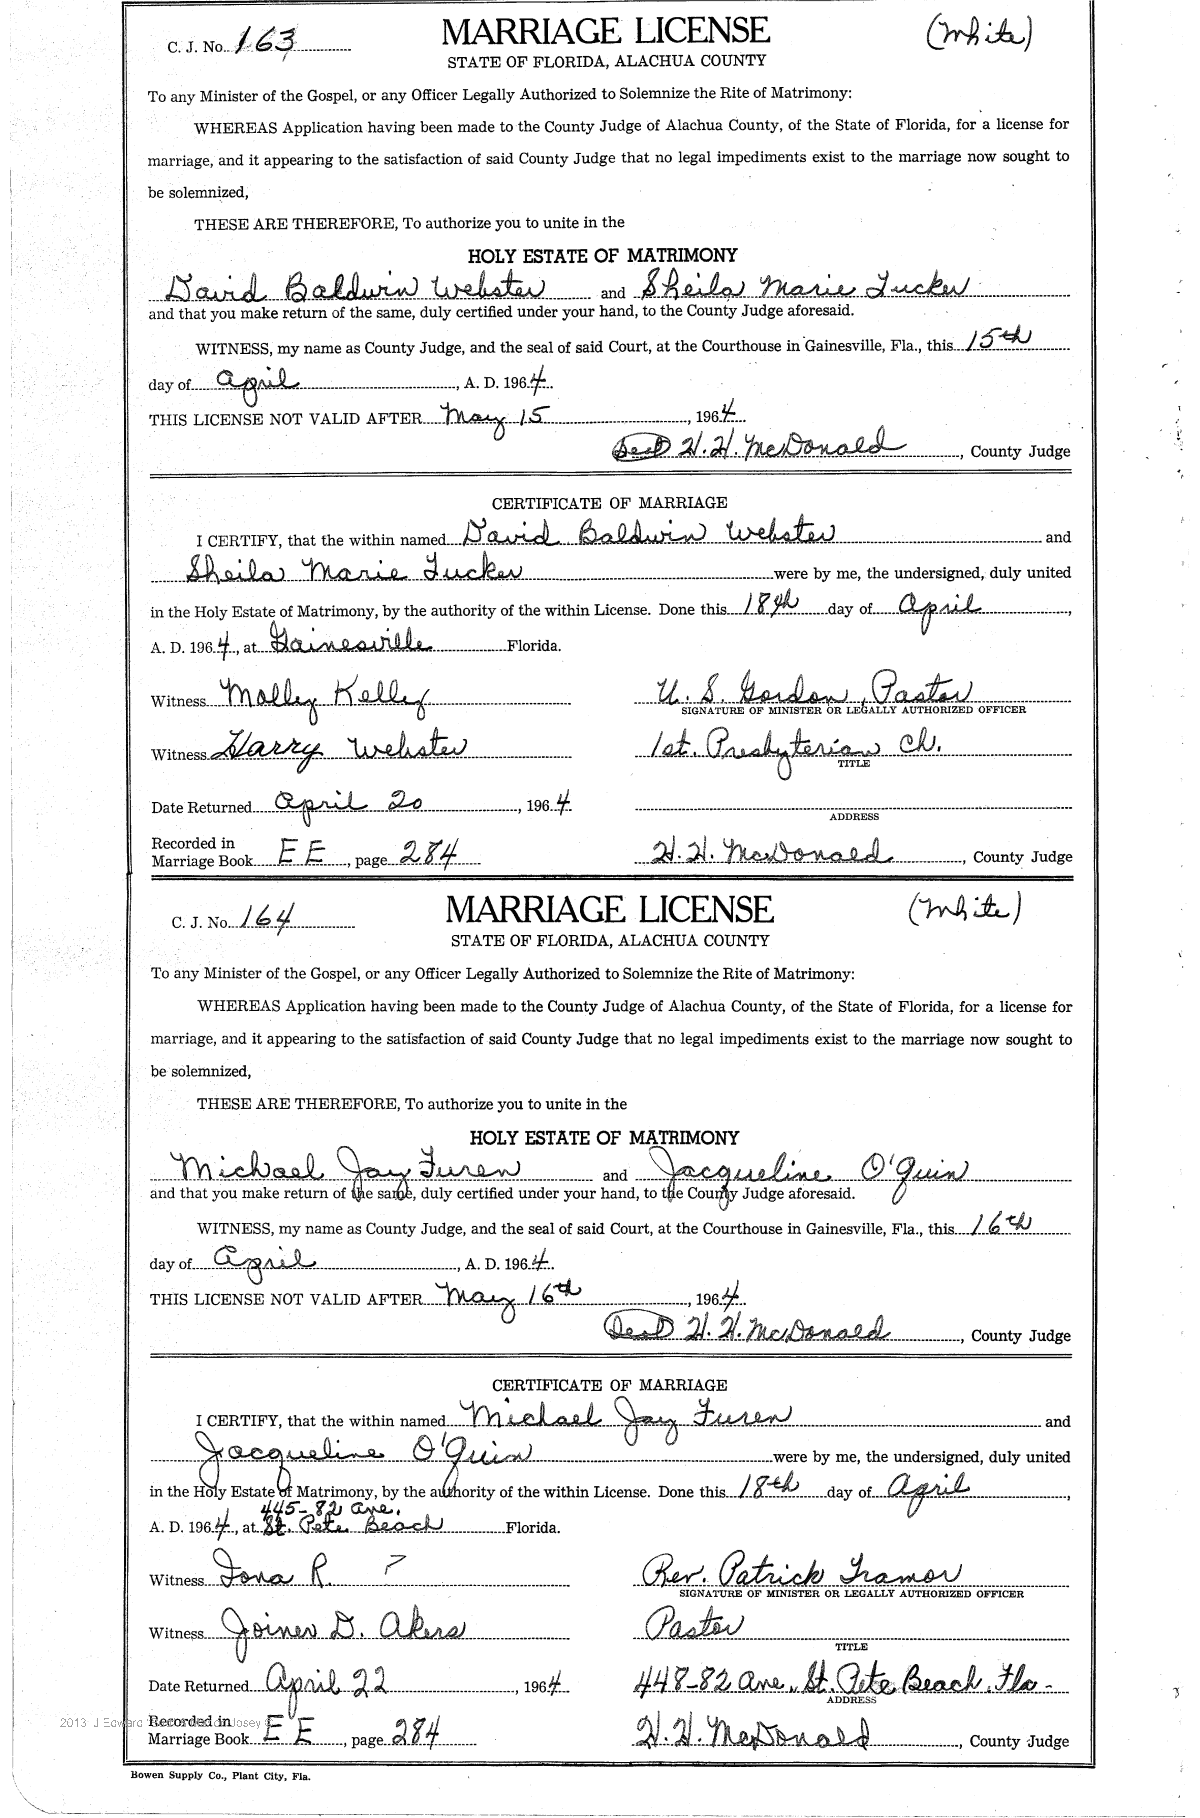 C. J. No. 163
MARRIAGE LICENSE
(White)
STATE OF FLORIDA, ALACHUA COUNTY
To any Minister of the Gospel, or any Officer Legally Authorized to Solemnize the Rite of Matrimony:
WHEREAS Application having been made to the County Judge of Alachua County, of the State of Florida, for a license for
marriage, and it appearing to the satisfaction of said County Judge that no legal impediments exist to the marriage now sought to
be solemnized,
THESE ARE THEREFORE, To authorize you to unite in the
HOLY ESTATE OF MATRIMONY
David Baldwin Webster and Sheila Marie Tucker
and that you make return of the same, duly certified under your hand, to the County Judge aforesaid.
WITNESS, my name as County Judge, and the seal of said Court, at the Courthouse in Gainesville, Fla., this 15th
day of April, A. D. 1964.
THIS LICENSE NOT VALID AFTER May 15, 1964
Seal H. H. McDonald, County Judge
CERTIFICATE OF MARRIAGE
I CERTIFY, that the within named David Baldwin Webster and
Sheila Marie Tucker were by me, the undersigned, duly united
in the Holy Estate of Matrimony, by the authority of the within License. Done this 18th day of April,
A. D. 1964, at Gainesville Florida.
Witness Molley Kelley U. S. Gordon, Pastor
SIGNATURE OF MINISTER OR LEGALLY AUTHORIZED OFFICER
Witness Harry Webster 1st. Presbyterian Ch.
TITLE
Date Returned April 20, 1964
ADDRESS
Recorded in
Marriage Book EE, page 284 H. H. McDonald, County Judge
C. J. No. 164
MARRIAGE LICENSE
(White)
STATE OF FLORIDA, ALACHUA COUNTY
To any Minister of the Gospel, or any Officer Legally Authorized to Solemnize the Rite of Matrimony:
WHEREAS Application having been made to the County Judge of Alachua County, of the State of Florida, for a license for
marriage, and it appearing to the satisfaction of said County Judge that no legal impediments exist to the marriage now sought to
be solemnized,
THESE ARE THEREFORE, To authorize you to unite in the
HOLY ESTATE OF MATRIMONY
Michael Jay Furen and Jacqueline O'Quin
and that you make return of the same, duly certified under your hand, to the County Judge aforesaid.
WITNESS, my name as County Judge, and the seal of said Court, at the Courthouse in Gainesville, Fla., this 16th
day of April, A. D. 1964.
THIS LICENSE NOT VALID AFTER May 16th, 1964
Seal H. H. McDonald, County Judge
CERTIFICATE OF MARRIAGE
I CERTIFY, that the within named Michael Jay Furen and
Jacqueline O'Quin were by me, the undersigned, duly united
in the Holy Estate of Matrimony, by the authority of the within License. Done this 18th day of April,
445-82 Ave.
A. D. 1964, at St. Pete Beach Florida.
Witness Iona R. ? Rev. Patrick Tramor
SIGNATURE OF MINISTER OR LEGALLY AUTHORIZED OFFICER
Witness Joiner D. Akers Pastor
TITLE
Date Returned April 22, 1964 448-82 Ave., St. Pete Beach, Fla-
ADDRESS
2013 J Edward
Recorded in
Josey
Marriage Book EE, page 284 H. H. McDonald, County Judge
Bowen Supply Co., Plant City, Fla.